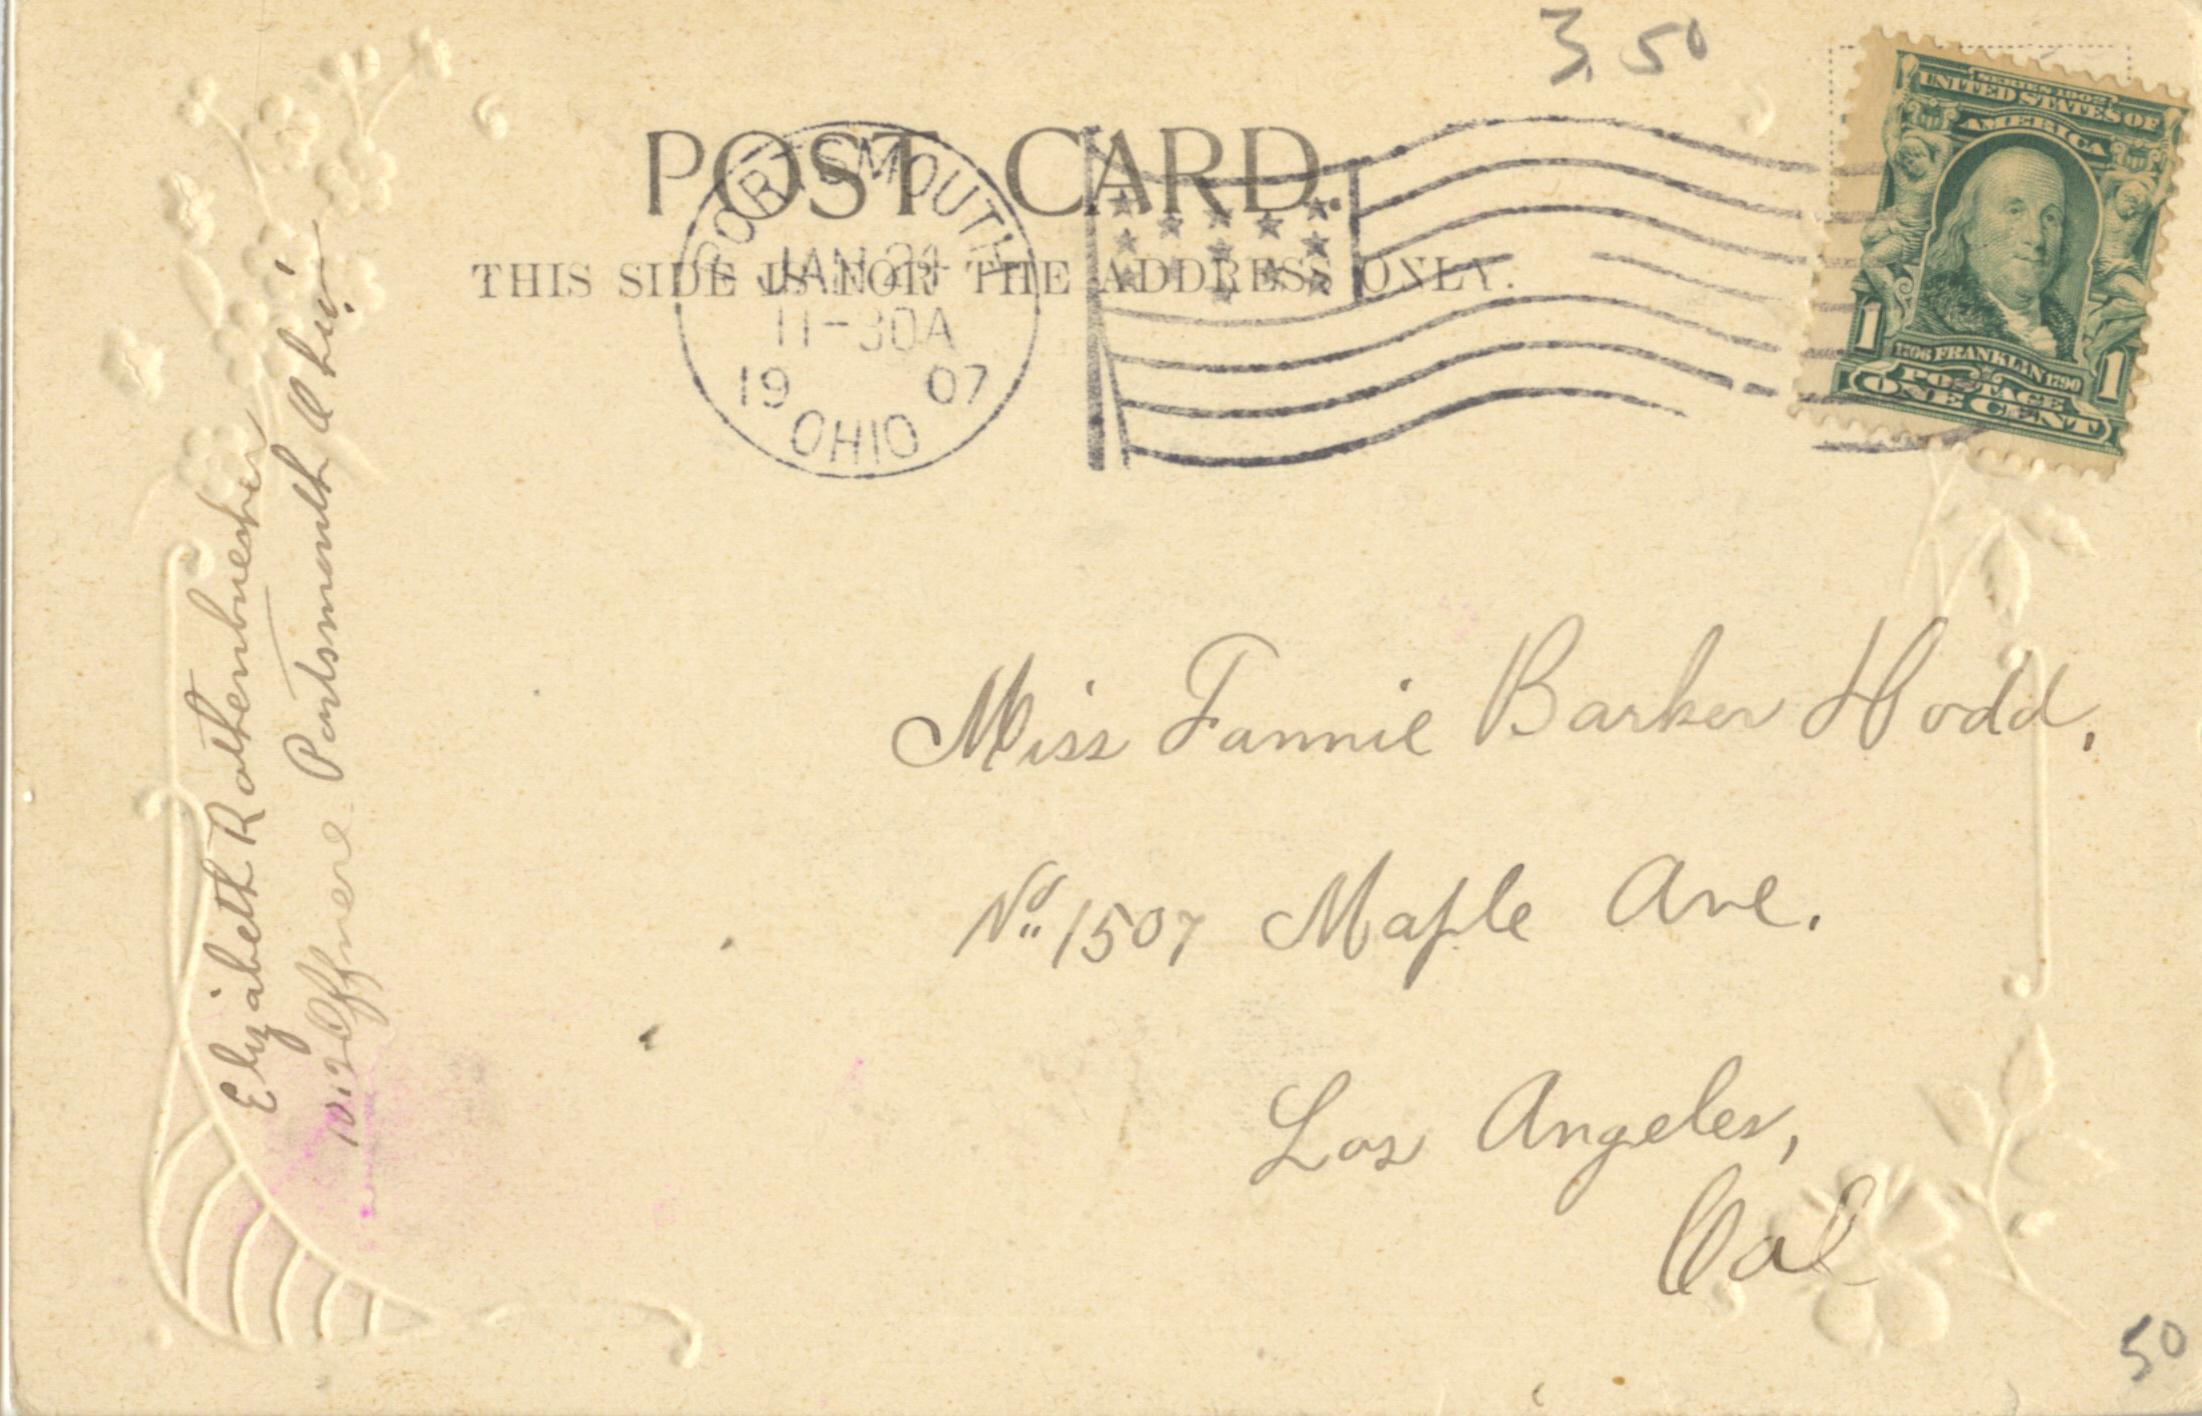 3.50
POST CARD.
THIS SIDE IS FOR THE ADDRESS ONLY.
PORTSMOUTH
JAN 24
11-30A
19 07
OHIO
SERIES 1902
UNITED STATES OF
AMERICA
1706 FRANKLIN 1790
1 1
POSTAGE
ONE CENT
Miss Fannie Barker Hodd,
No. 1507 Maple Ave.
Los Angeles,
Cal
Elizabeth
Portsmouth Ohio.
50